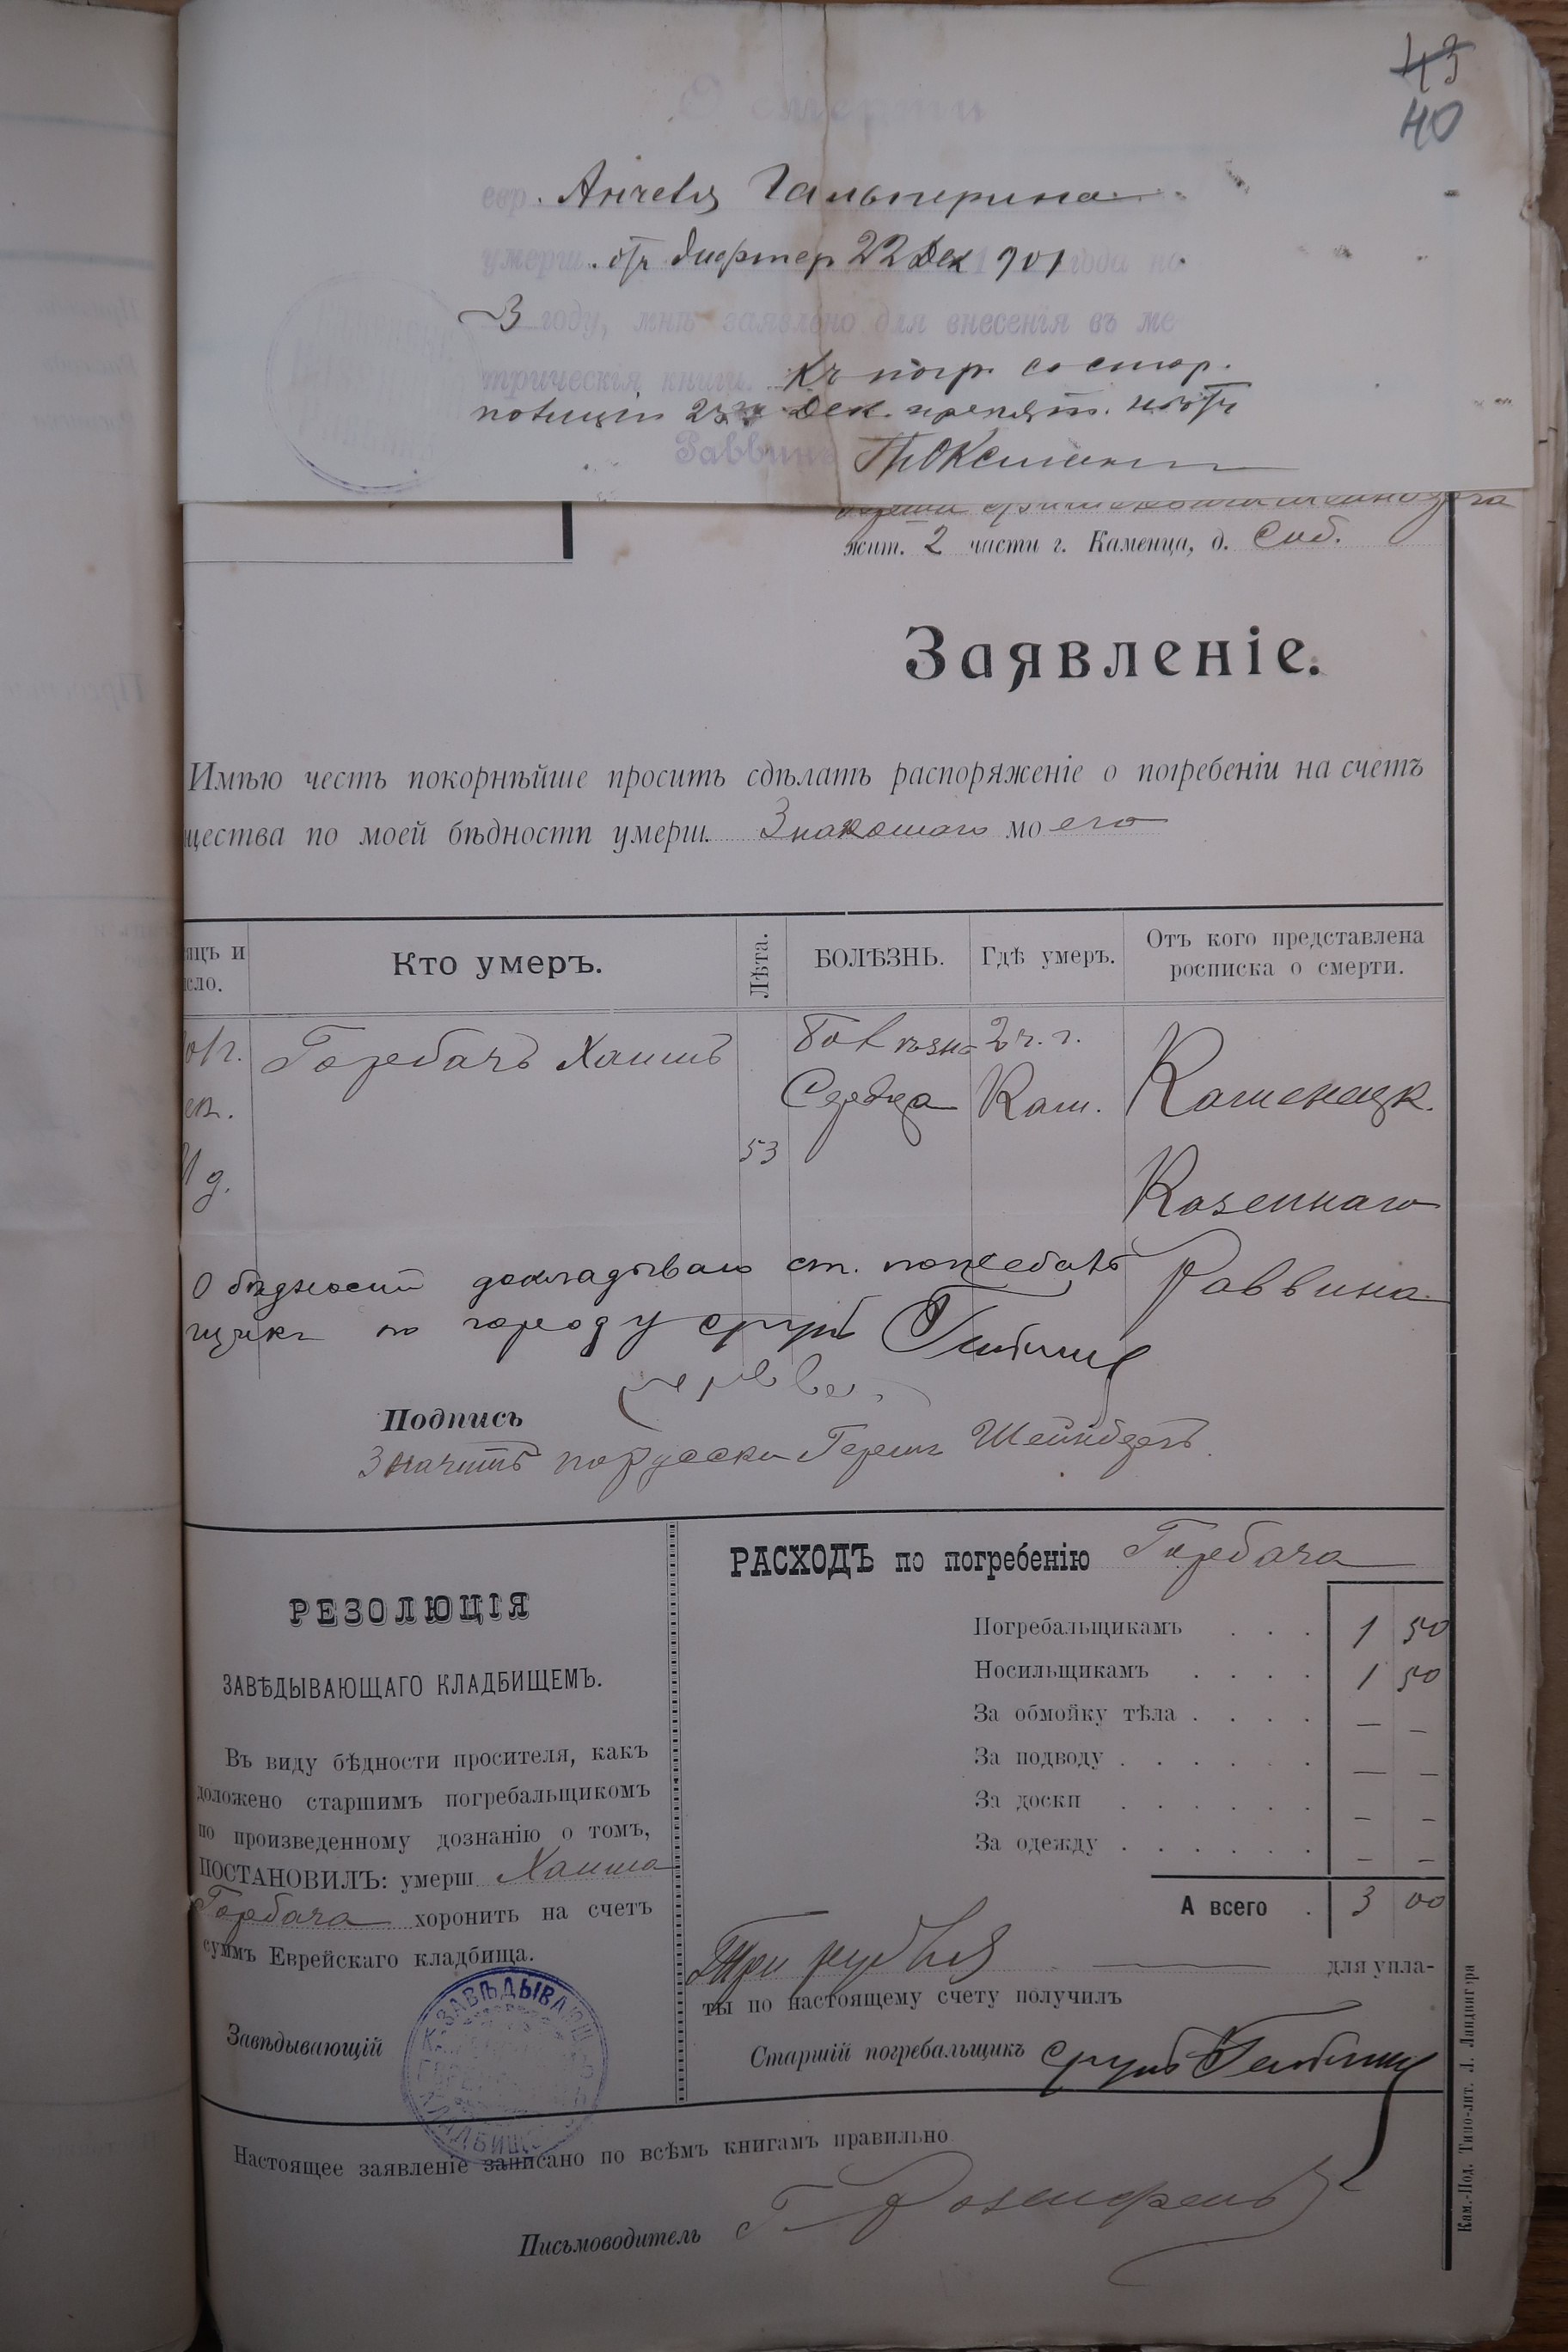 43
40
О смерти
евр. Анчеля Гальперина
умерш. отъ дифтер 22 Дек 1901 года на
3 году, мнѣ заявлено для внесенія въ ме
трическія книги. Къ погр. со стор.
полиціи 23 Дек. препят. нѣтъ
Раввинъ
жит. 2 части г. Каменца, д. Соб.
Заявленіе.
Имѣю честь покорнѣйше просить сдѣлать распоряженіе о погребеніи на счетъ
щества по моей бѣдности умерш. Знакомаго моего
яцъ и
исло.
Кто умеръ.
Лѣта.
БОЛѢЗНЬ.
Гдѣ умеръ.
Отъ кого представлена
росписка о смерти.
Горбачъ Хаимъ
53
Болѣзнь
Сердца
2 ч. г.
Кам.
Каменецк.
Казеннаго
Раввина
ек.
1 д.
О бѣдности докладываю ст. погребаль
щикъ по городу Сруль
Подпись
Значитъ порусски Гершъ Шейнбергъ.
РЕЗОЛЮЦІЯ
ЗАВѢДЫВАЮЩАГО КЛАДБИЩЕМЪ.
Въ виду бѣдности просителя, какъ
доложено старшимъ погребальщикомъ
по произведенному дознанію о томъ,
ПОСТАНОВИЛЪ: умерш. Хаима
Горбача хоронить на счетъ
суммъ Еврейскаго кладбища.
Завѣдывающій
ЗАВѢДЫВАЮЩ
КЛАДБИЩ
РАСХОДЪ по погребенію Горбача
Погребальщикамъ . . . 1 50
Носильщикамъ . . . . 1 50
За обмойку тѣла . . . . — —
За подводу . . . . . . — —
За доски . . . . . . — —
За одежду . . . . . . — —
А всего . 3 00
Три рубля — для упла-
ты по настоящему счету получилъ
Старшій погребальщикъ Сруль
Настоящее заявленіе записано по всѣмъ книгамъ правильно
Письмоводитель Г Розенфель
Кам.-Под. Типо-лит. Л. Ландвигера